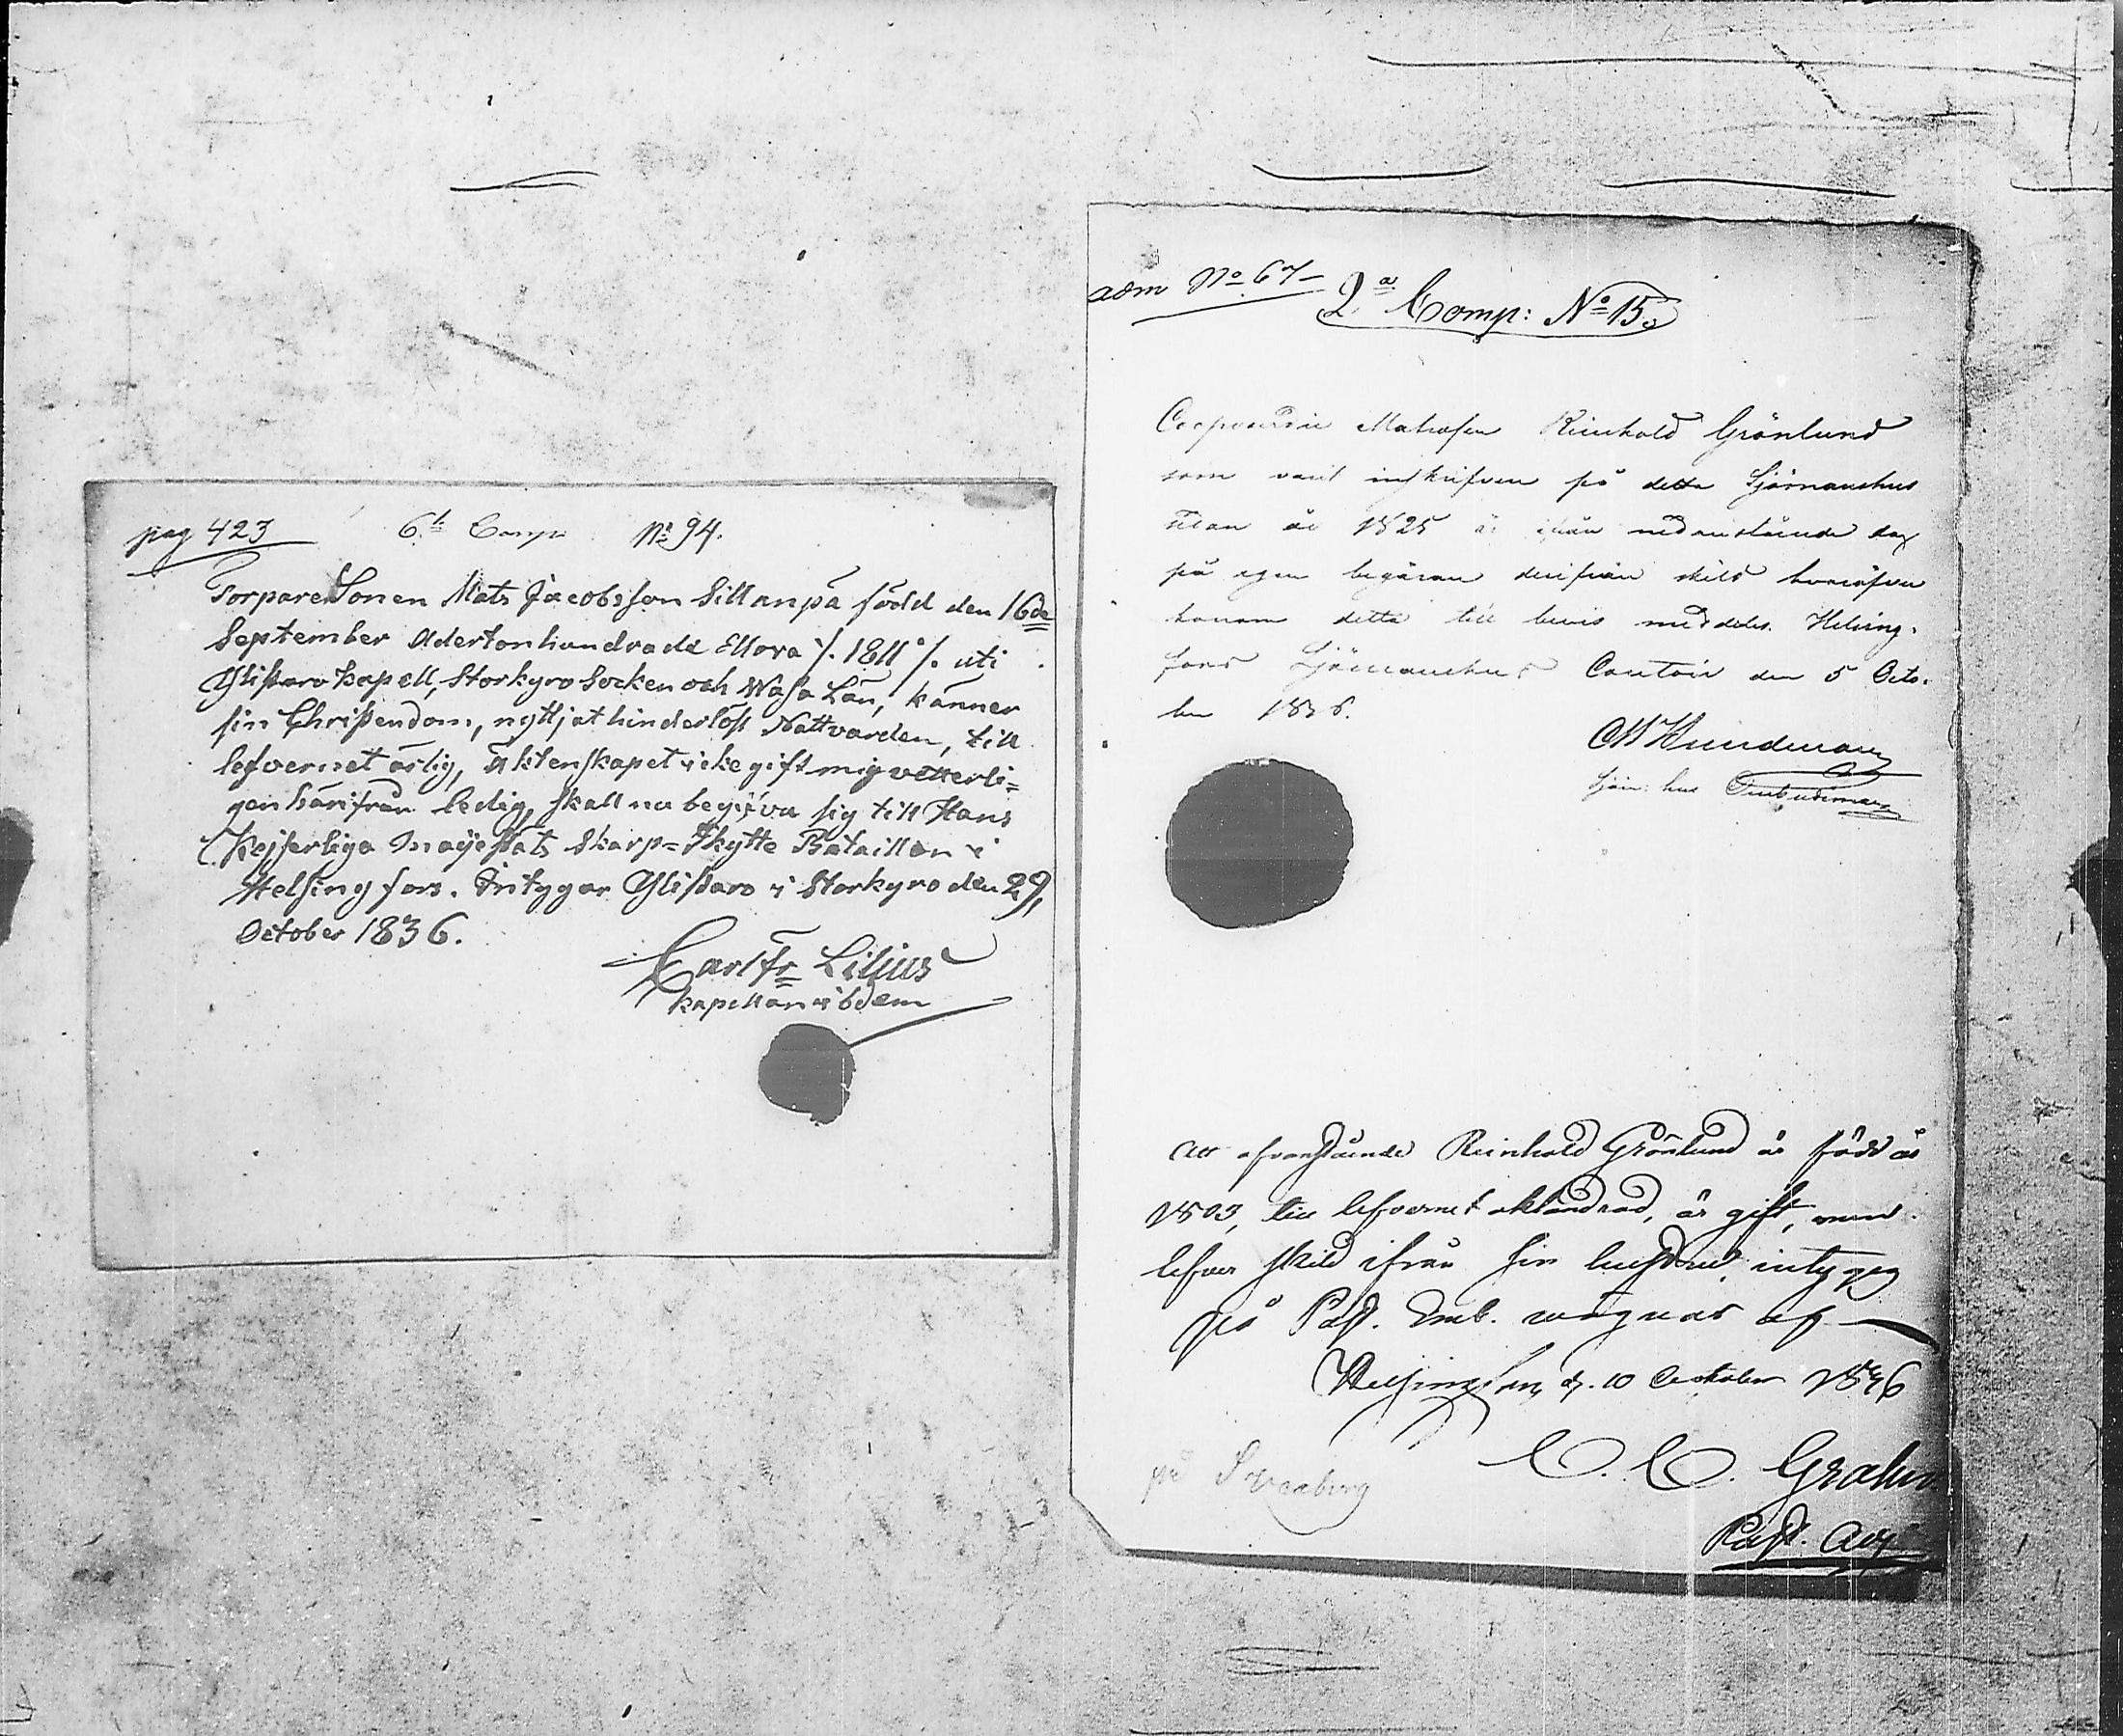 pag 423 6te Comp. No 94.
Torpare Sonen Mats Jacobsson Sillanpä född den 16de
September Adertonhundrade Ellova ./. 1811 ./. uti
Ylistaro Kapell, Storkyro Socken och Wasa Län, känner
sin Christendom, nyttjat hinderlöst Nattvarden, till
lefvernet ärlig, äktenskapet icke gift mig vetterli=
gen härifrån ledig, skall nu begifva sig till Hans
Kejserliga Majestäts Skarp=Skytte Bataillon i
Helsingfors. Intygar Ylistaro i Storkyro den 29,
October 1836.
Carl Fr Lilius
Kapellan ibdem
adm No 67
2a Comp: No 15.
Matrosen Reinhold Grönlund
som varit inskrifven på detta Sjömanshus
sedan år 1825 är ifrån nedanstående dag
på egen begäran derifrån skild hvaröfver
honom detta till bevis meddelas. Helsing-
fors Sjömanshus Contoir den 5 Octo-
ber 1836.
Sjöm: hus Ombudsman
Att ofvanstående Reinhold Grönlund är född år
1803, till lefvernet oklandrad, är gift, men
lefver skild ifrån sin hustru, intygas
på Past. Emb. wägnar af
Helsingfors d. 10 October 1836
C. C. Grahn
Past. Adj.
på Sveaborg